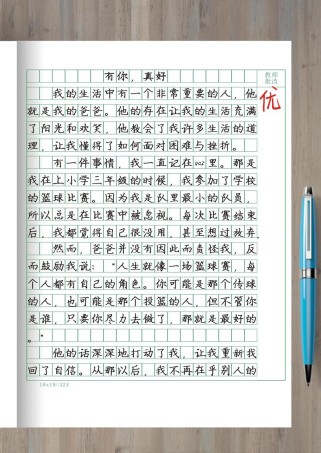 有你，真好
教师
批改
优
我的生活中有一个非常重要的人，他
就是我的爸爸。他的存在让我的生活充满
了阳光和欢笑，他教会了我许多生活的道
理，让我懂得了如何面对困难与挫折。
有一件事情，我一直记在心里。那是
我在上小学三年级的时候，我参加了学校
的篮球比赛。因为我是队里最小的队员，
所以总是在比赛中被忽视。每次比赛结束
后，我都觉得自己很没用，甚至想过放弃。
然而，爸爸并没有因此而责怪我，反
而鼓励我说：“人生就像一场篮球赛，每
个人都有自己的角色。你可能是那个传球
的人，也可能是那个投篮的人，但不管你
是谁，只要你尽力去做了，那就是最好的
。”
他的话深深地打动了我，让我重新找
回了自信。从那以后，我不再在乎别人的
18x18=324